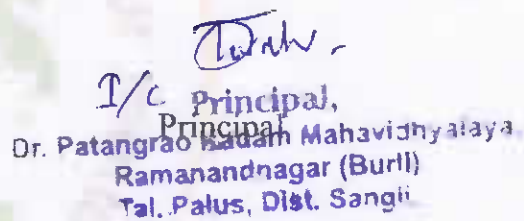 I/C Principal,
Principal
Dr. Patangrao Kadam Mahavidhyalaya,
Ramanandnagar (Burli)
Tal. Palus, Dist. Sangli